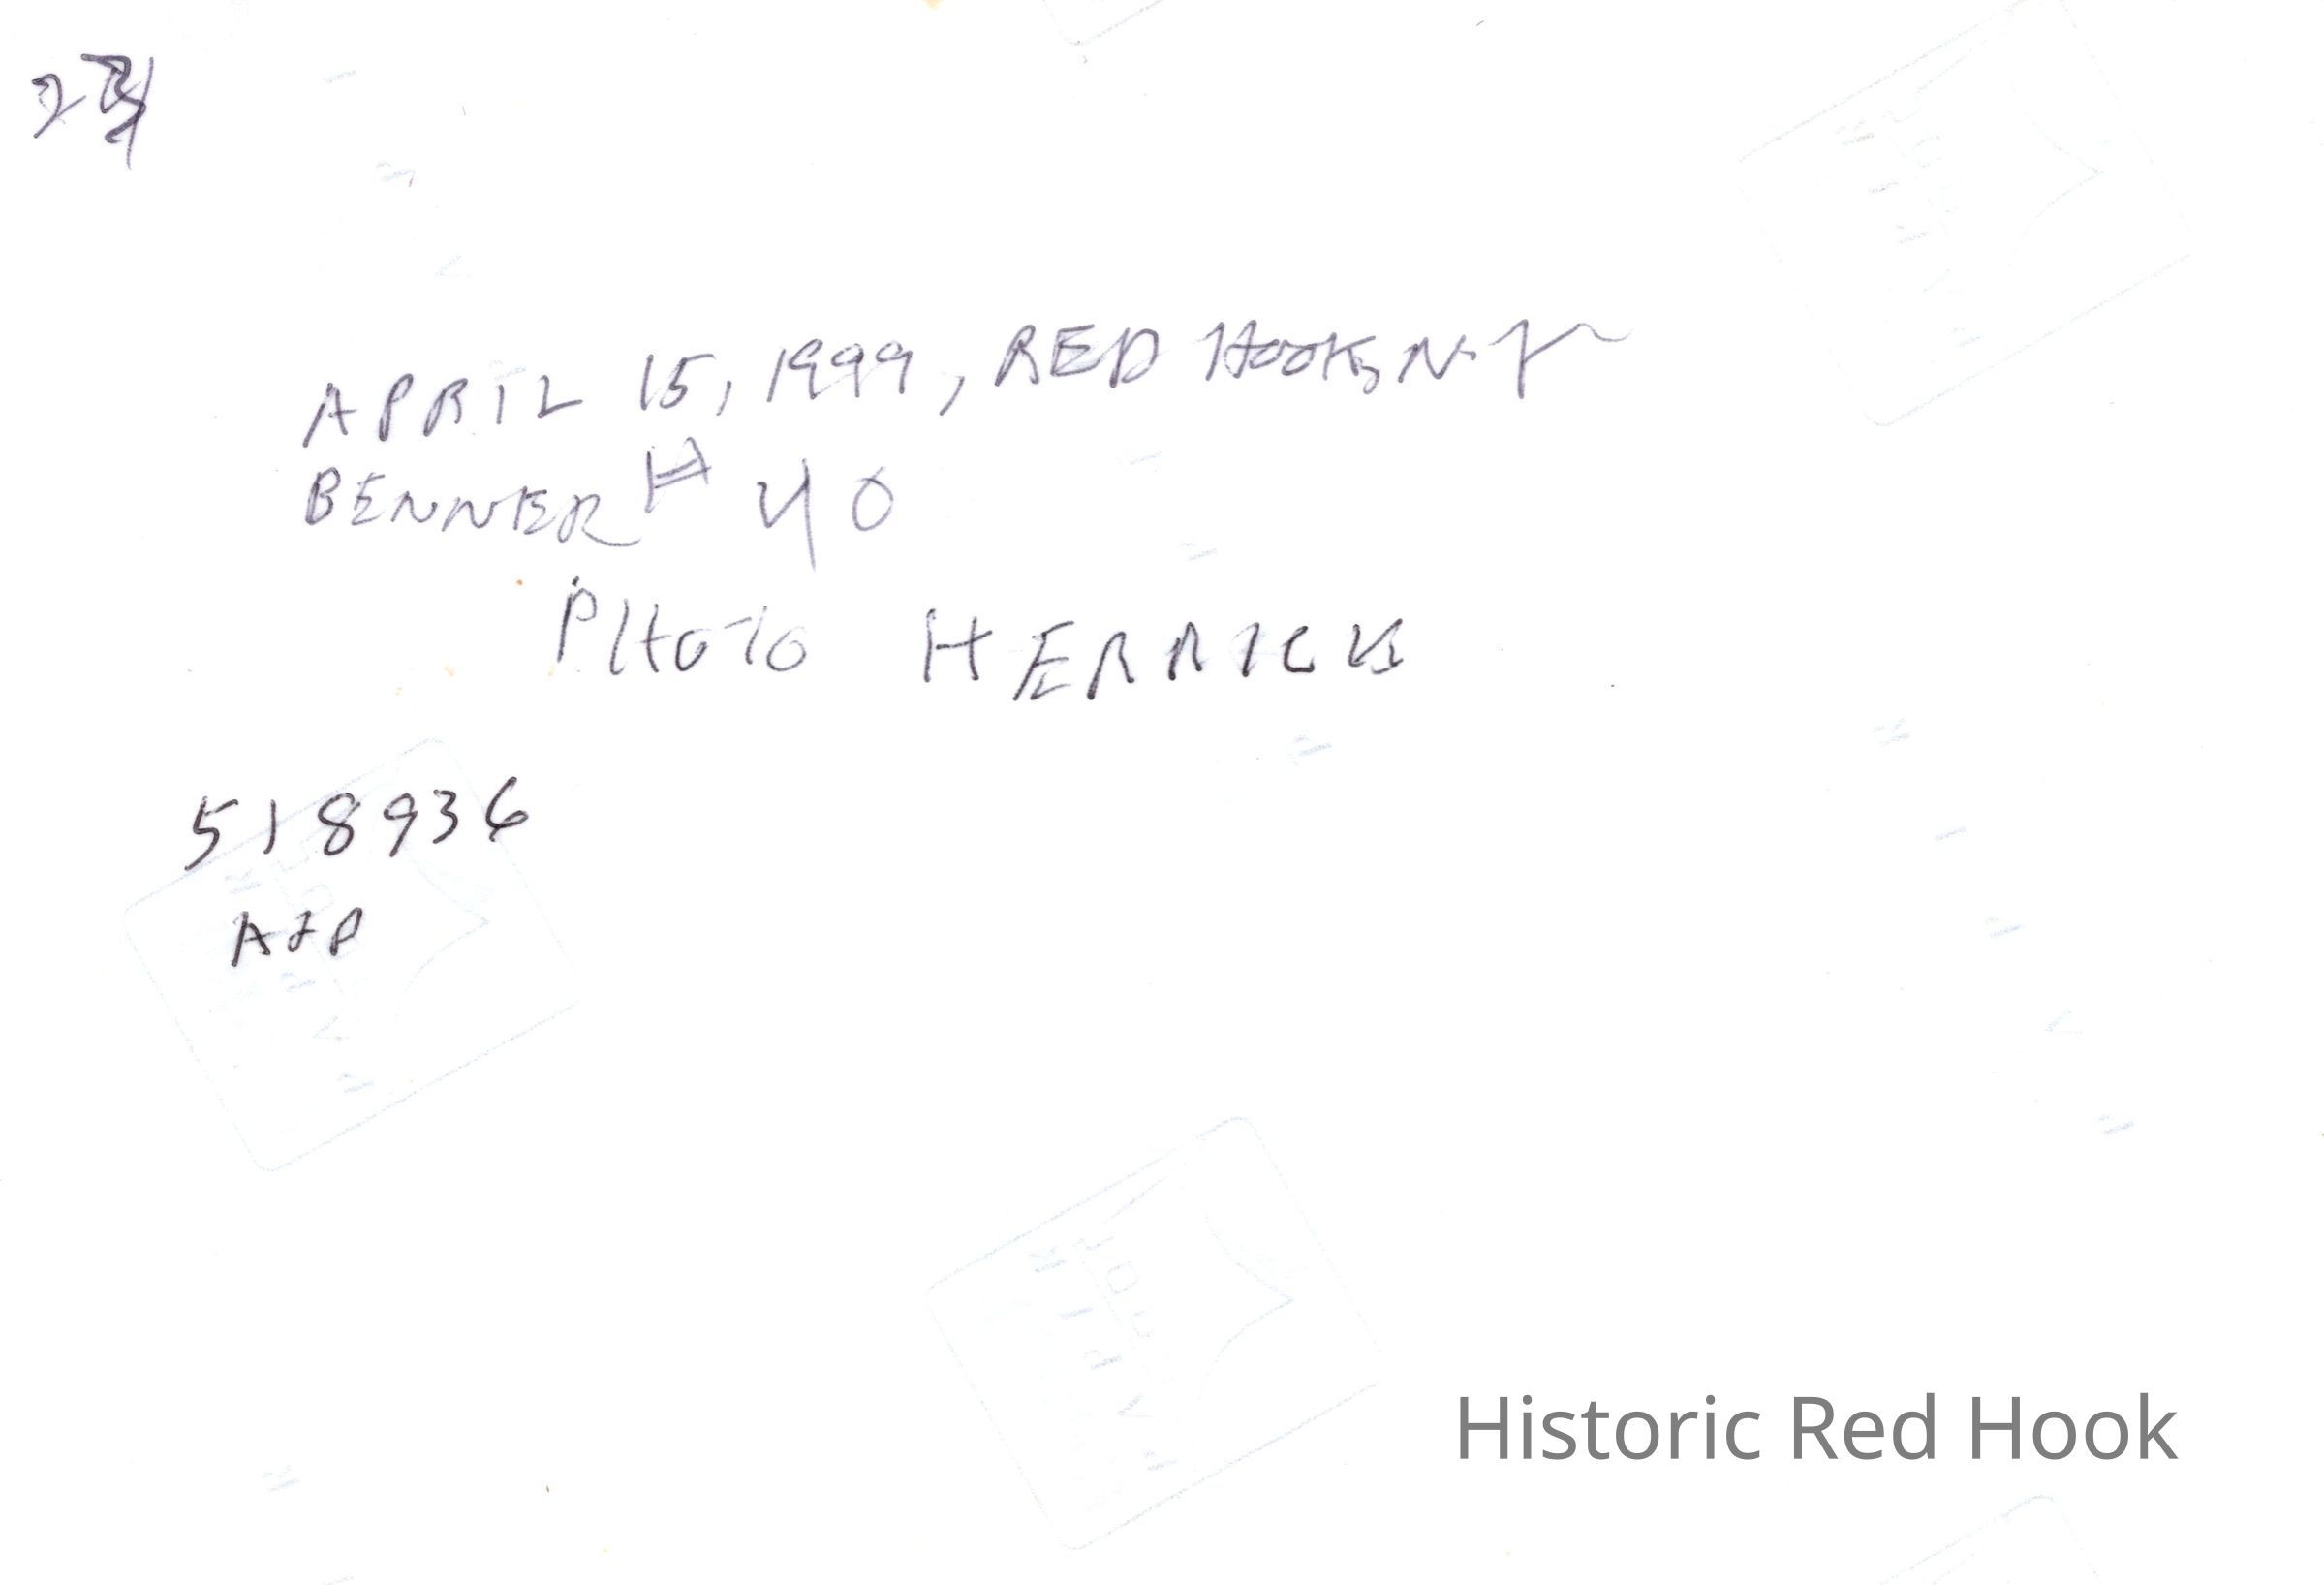 APRIL 15, 1999, RED HOOK, N.Y
BENNER H 40
PHOTO HERRICK
518936
Historic Red Hook